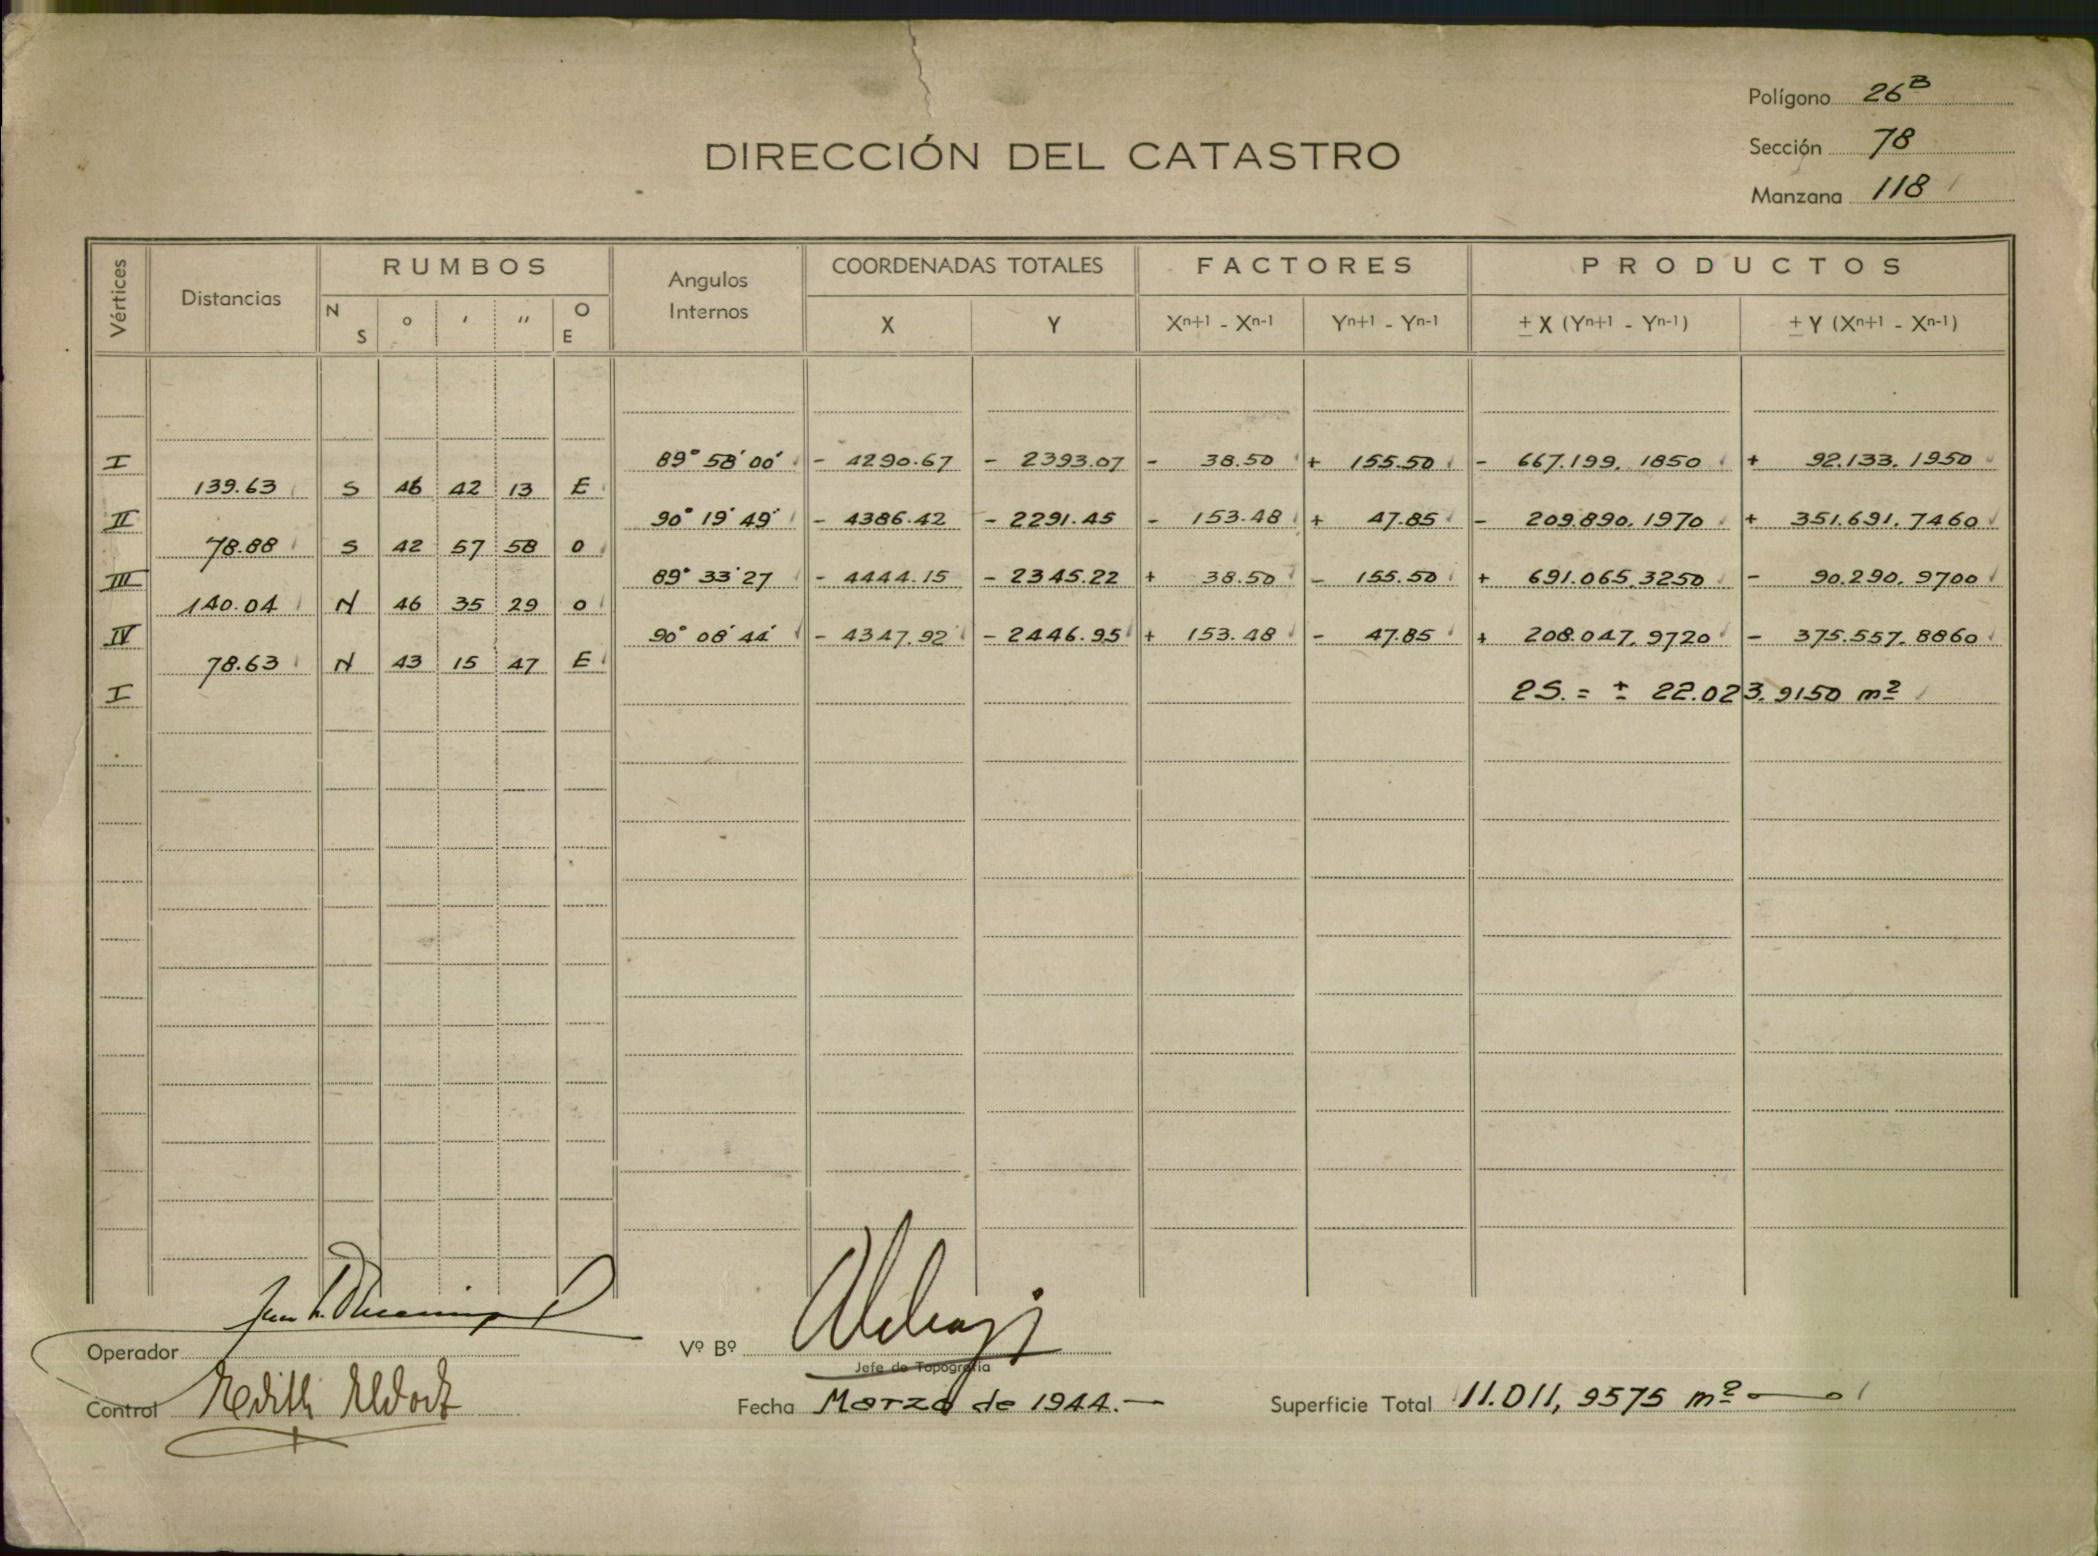 Polígono 26B
Sección 78
Manzana 118
DIRECCIÓN DEL CATASTRO
Vértices Distancias RUMBOS Angulos Internos COORDENADAS TOTALES FACTORES PRODUCTOS
N S ° ' " O E X Y Xn+1 - Xn-1 Yn+1 - Yn-1 ± X (Yn+1 - Yn-1) ± Y (Xn+1 - Xn-1)
I 89° 58' 00" - 4290.67 - 2393.07 - 38.50 + 155.50 - 667.199.1850 + 92.133.1950
139.63 S 46 42 13 E
II 90° 19' 49" - 4386.42 - 2291.45 - 153.48 + 47.85 - 209.890.1970 + 351.691.7460
78.88 S 42 57 58 O
III 89° 33' 27 - 4444.15 - 2345.22 + 38.50 - 155.50 + 691.065.3250 - 90.290.9700
140.04 N 46 35 29 O
IV 90° 08' 44" - 4347.92 - 2446.95 + 153.48 - 47.85 + 208.047.9720 - 375.557.8860
78.63 N 43 15 47 E
I 2S. = ± 22.023.9150 m²
Operador
Vº Bº
Jefe de Topografía
Control Edith
Fecha Marzo de 1944.—
Superficie Total 11.011,9575 m²